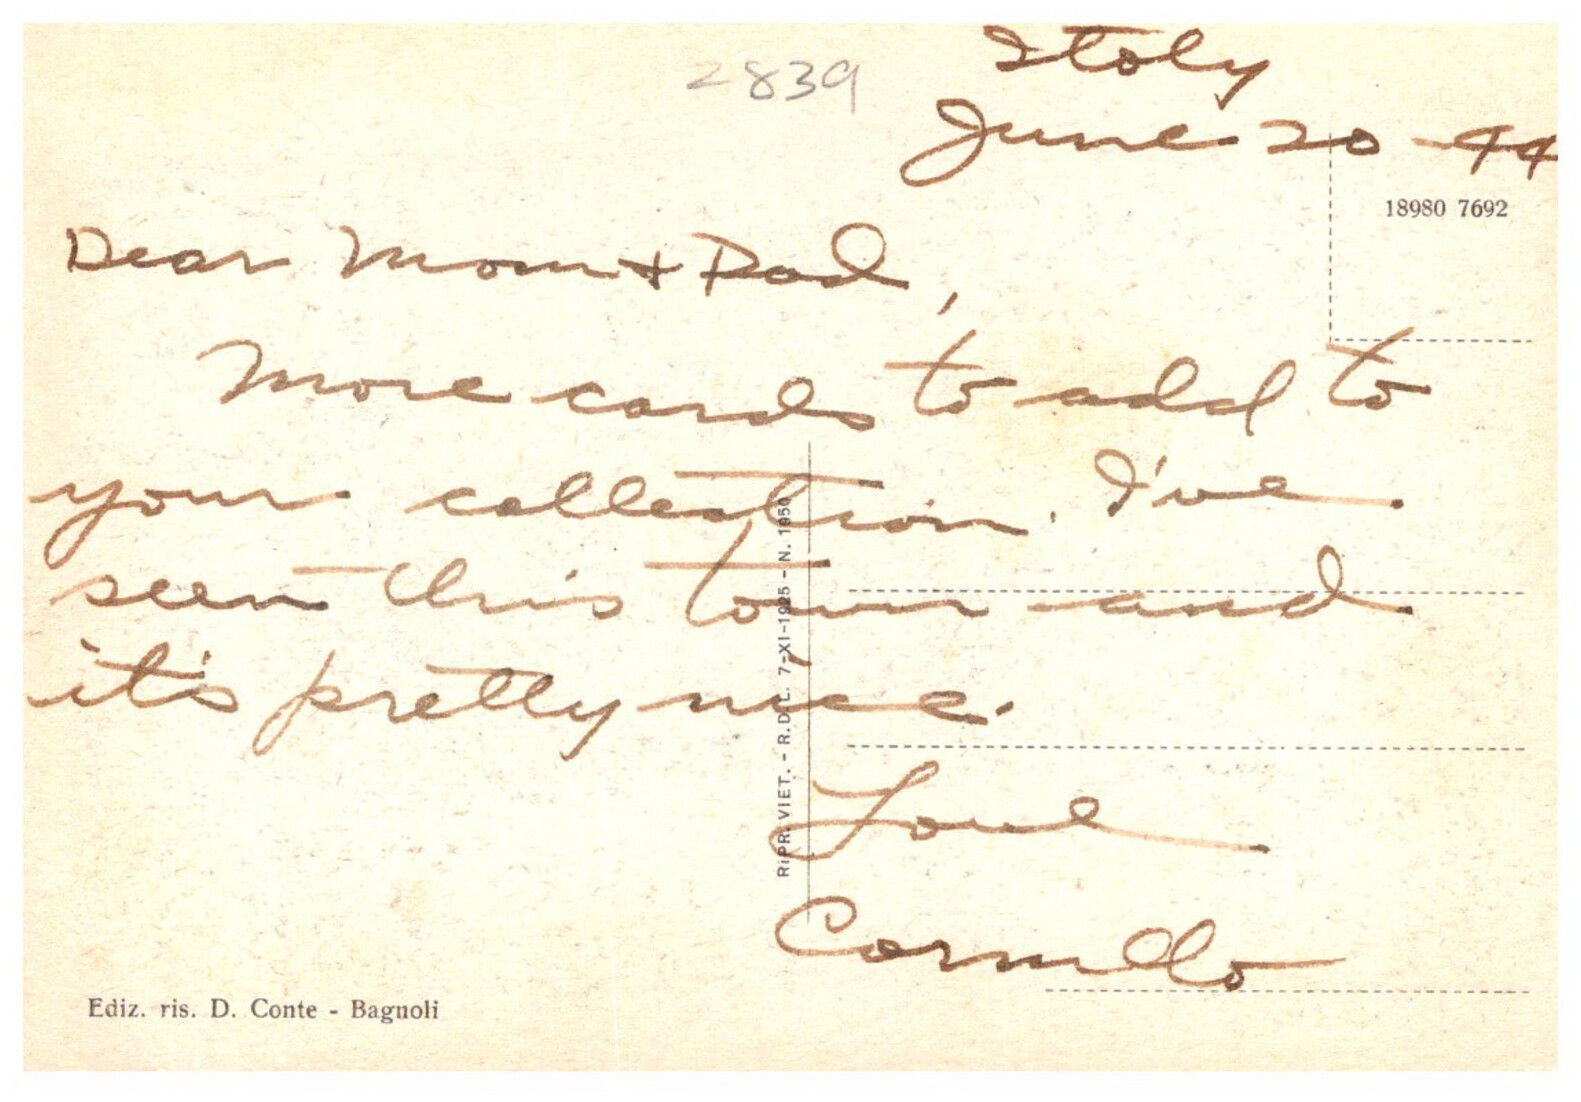 2839
Italy
June 20-44
18980 7692
Dear Mom + Dad,
More cards to add to
your collection. I've
seen this town and
it's pretty nice.
Love
RiPR. VIET. - R. D. L. 7-XI-1925 - N. 1950
Ediz. ris. D. Conte - Bagnoli